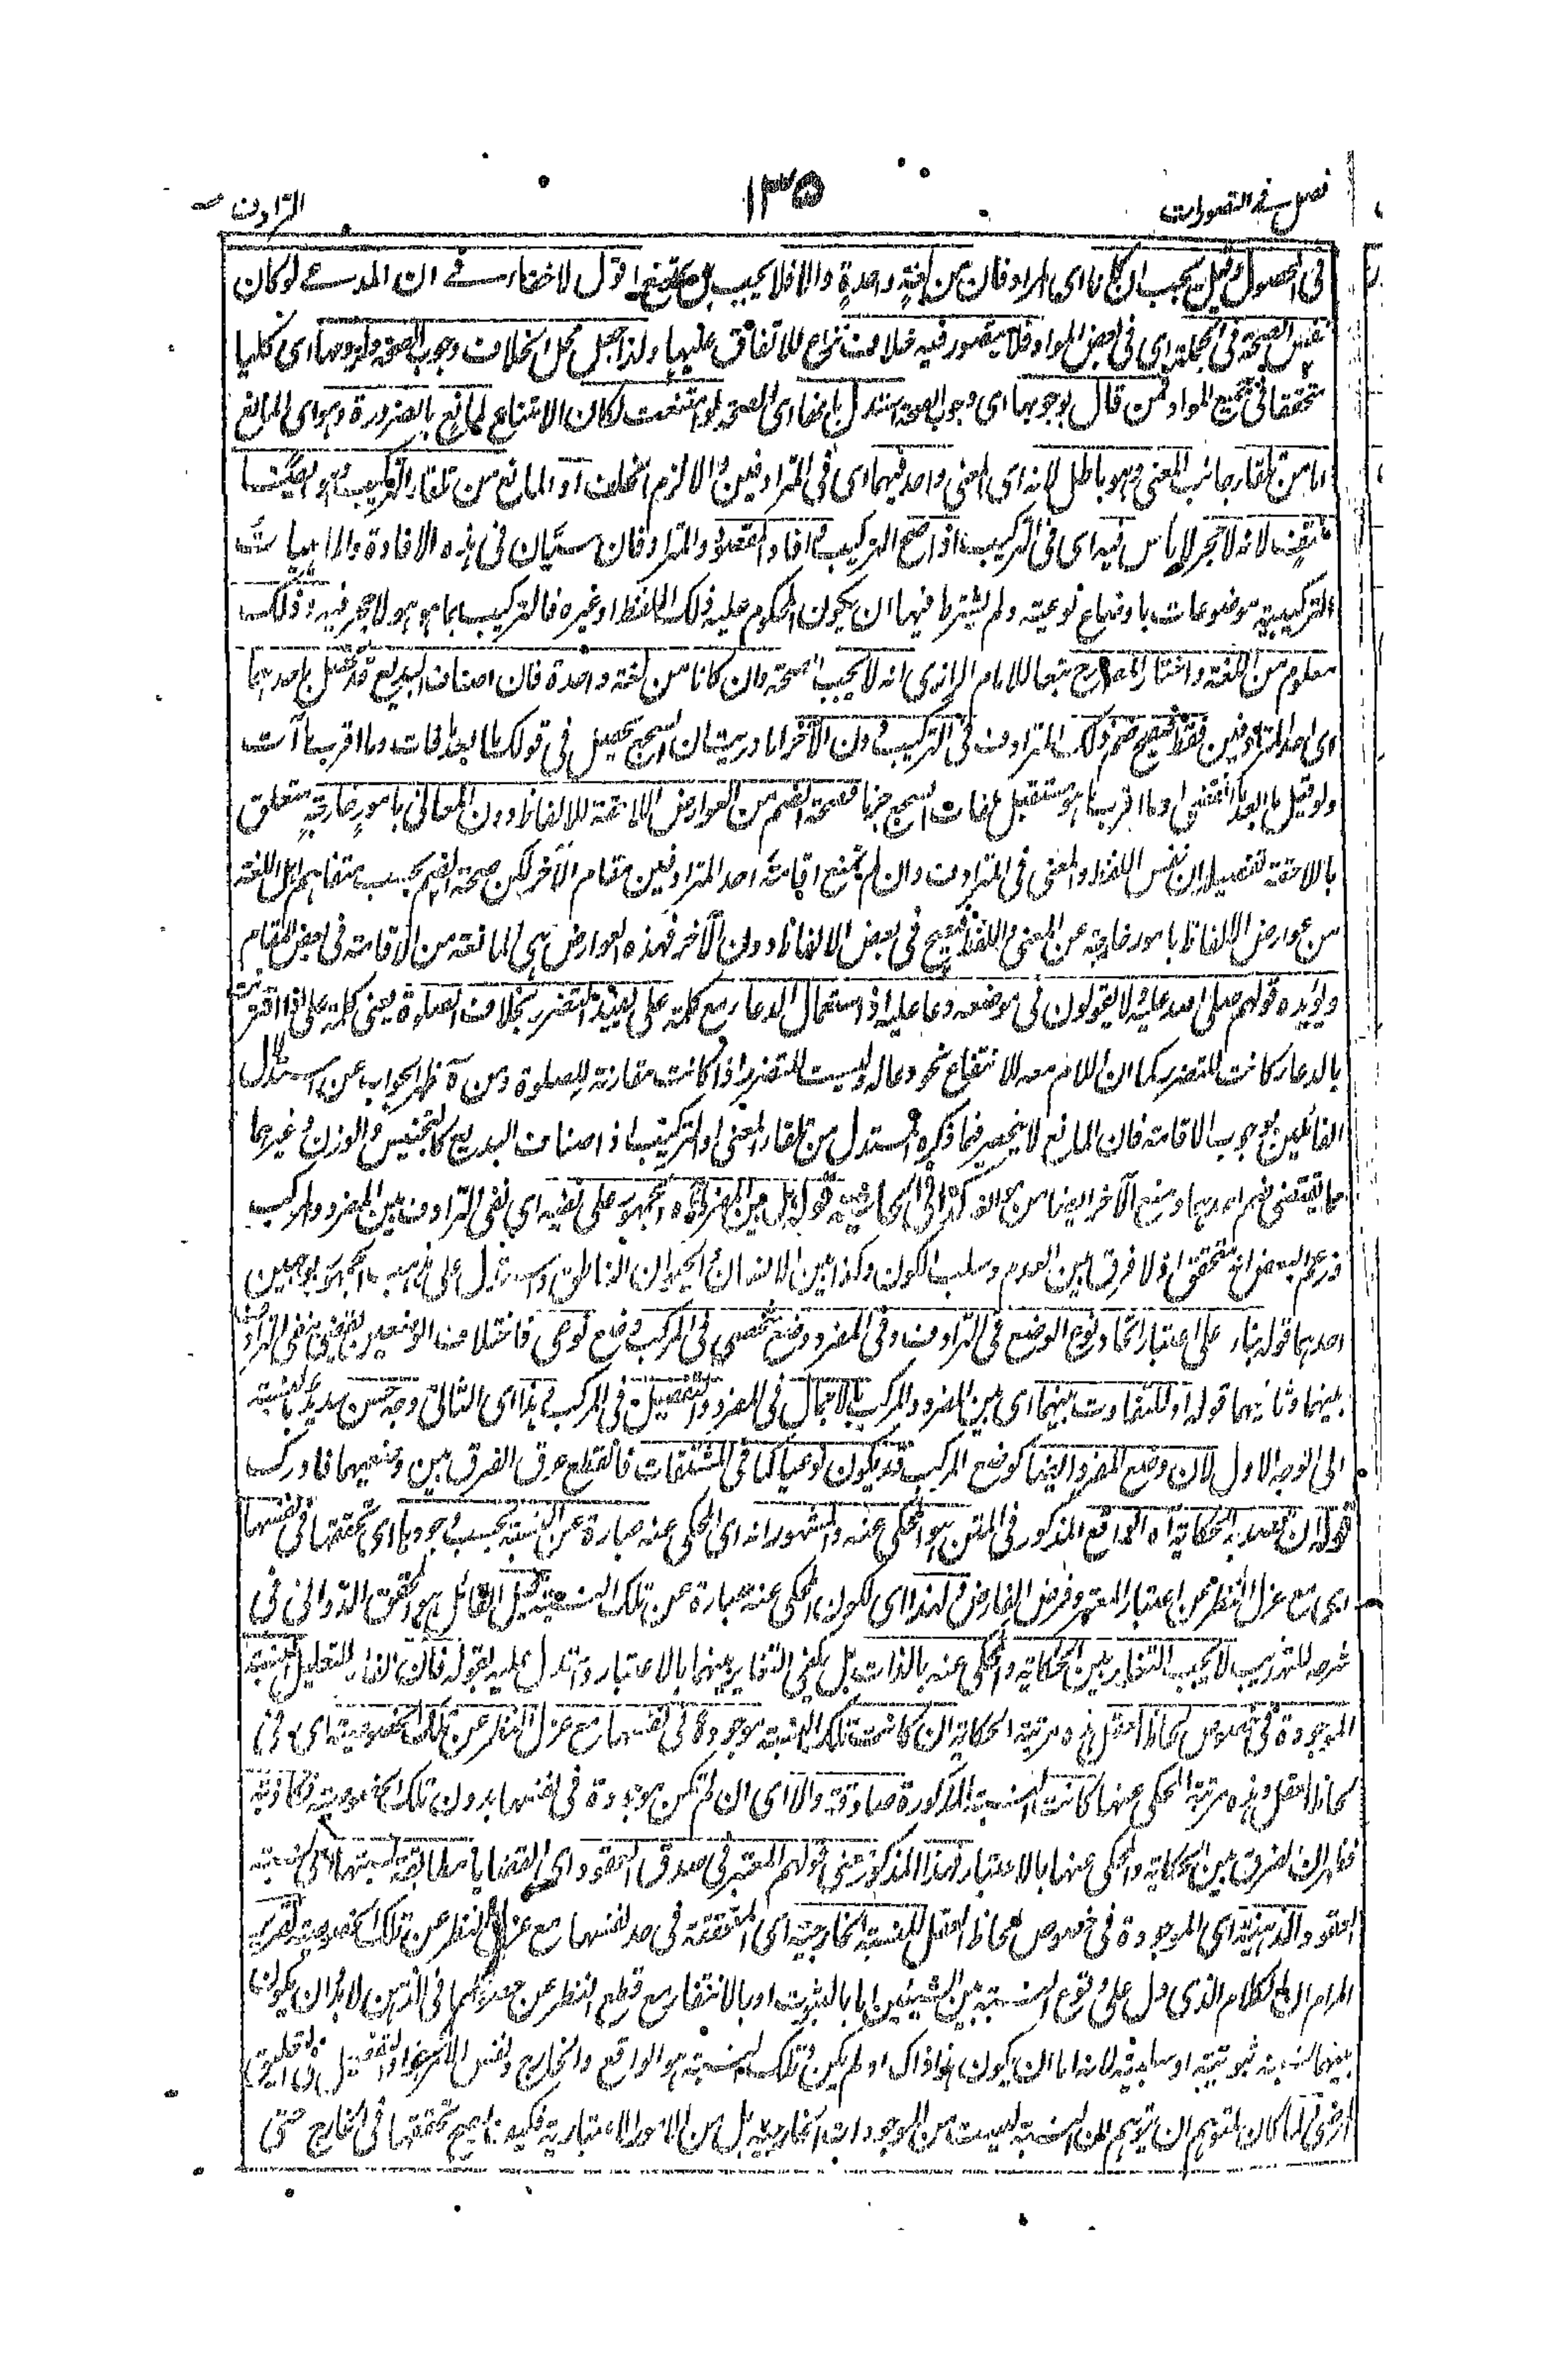 فصل في التصورات
١٣٥
الترادف
في الحصول وقيل يجب ان كانا اى المرادفان من لغة واحدة والا فلا يجب بل يمتنع اقول لا خفاء في ان المدعى لو كان
نفس الصحة في الجملة اى في بعض المواد فلا يتصور فيه خلاف نزاع للاتفاق عليها ولذا جعل محل الخلاف وجوب الصحة ولزومها اى كليا
متحققا في جميع المواد فمن قال بوجوبها اى وجوب الصحة استدل بانها اى الصحة لو امتنعت لكان الامتناع لمانع بالضرورة وهو اى المانع
اما من تلقاء جانب المعنى وهو باطل لانه اى المعنى واحد فيهما اى في المترادفين والا لزم الخلف او المانع من تلقاء التركيب وهو ايضا
منتف لانه لا حجر لا بأس فيه اى في التركيب اذا صح التركيب وافاد المقصود والمترادفان سيّان في هذه الافادة والهيات
التركيبية موضوعات باوضاع نوعية ولم يشترط فيها ان يكون المحكوم عليه ذلك اللفظ او غيره فالتركيب بما هو هو لا حجر فيه وذلك
معلوم من اللغة واختار الشارح تبعا للامام الرازى انه لا يجب الصحة وان كانا من لغة واحدة فان اصناف البديع قد تحصل باحدهما
اى احد المترادفين فقط فيصح ضم ذلك المترادف في التركيب دون الآخر اما دريت ان السجع يحصل في قولك ما ابعد ما فات وما اقرب ما آت
ولو قيل ما ابعد ما انقضى وما اقرب ما هو مستقبل لفات السجع جزما فصحة الضم من العوارض اللاحقة للالفاظ دون المعاني بامور خارجة متعلق
باللاحقة تفصيله ان نفس اللفظ والمعنى في المترادف وان لم يمنع اقامة احد المترادفين مقام الآخر لكن صحة الضم بحسب متفاهم اهل اللغة
من عوارض الالفاظ بامور خارجة عن المعنى واللفظ فيصح في بعض الالفاظ دون الآخر فهذه العوارض هى المانعة من الاقامة في بعض المقام
ويؤيده قولهم صلى الله عليه ولا يقولون في موضعه دعا عليه اذ استعمال الدعاء مع كلمة على يفيد التضرر بخلاف الصلوة يعنى كلمة على اذا اقترنت
بالدعاء كانت للتضرر كما ان اللام معه للانتفاع نحو دعا له وليست للتضرر اذا كانت مقارنة للصلوة ومن ههنا ظهر الجواب عن استدلال
القائلين بوجوب الاقامة فان المانع لا ينحصر فيما ذكره المستدل من تلقاء المعنى او التركيب اذ اصناف البديع كالتجنيس والوزن وغيرهما
مما يقتضى ضم احدهما ومنع الآخر ايضا من موانع كذا في الحاشية قوله بل بين المفرد آه الجمهور على نفيه اى نفى الترادف بين المفرد والمركب
وزعم البعض انه متحقق اذ لا فرق بين العدم وسلب الكون وكذا بين الانسان والحيوان الناطق واستدل على مذهب الجمهور بوجهين
احدهما قوله بناء على اعتبار اتحاد نوع الوضع في الترادف وفي المفرد وضع شخصى وفي المركب وضع نوعى فاختلاف الوضعين يقتضى نفى الترادف
بينهما وثانيهما قوله او للتفاوت بينهما اى بين المفرد والمركب بالاجمال في المفرد والتفصيل في المركب وهذا اى الثانى وجه حسن سديد بالنسبة
الى الوجه الاول لان وضع المفرد ايضا كوضع المركب قد يكون نوعيا كما في المشتقات فانقطع عرق الفرق بين وضعيهما فادرك
قوله ان قصد به الحكاية آه الواقع المذكور في المتن هو المحكى عنه والمشهور انه اى المحكى عنه عبارة عن النسبة بحسب وجودها اى تحققها في نفسها
اى مع عزل النظر عن اعتبار المعتبر وفرض الفارض ولهذا اى لكون المحكى عنه عبارة عن تلك النسبة قيل القائل هو المحقق الدوانى في
شرحه للتهذيب لا يجب التغاير بين الحكاية والمحكى عنه بالذات بل يكفى التغاير بينهما بالاعتبار واستدل عليه بقوله فان الفاء للتعليل النسبة
الموجودة في خصوص لحاظ العقل وهذه مرتبة الحكاية ان كانت تلك النسبة موجودة في نفسها مع عزل النظر عن تلك الخصوصية اى في
لحاظ العقل وهذه مرتبة المحكى عنها كانت النسبة المذكورة صادقة والا اى ان لم تكن موجودة في نفسها بدون تلك الخصوصية فكاذبة
فظهر ان الفرق بين الحكاية والمحكى عنها بالاعتبار وهذا المذكور معنى قولهم المعتبر في صدق العقود اى القضايا مطابقة نسبتها اى نسبة
العقود الذهنية اى الموجودة في خصوص لحاظ العقل للنسبة الخارجية اى المتحققة في حد نفسها مع عزل النظر عن تلك الخصوصية تقرير
المرام ان الكلام الذى دل على وقوع النسبة بين الشيئين اما بالثبوت او بالانتفاء مع قطع النظر عن حصولهما في الذهن لا بد ان يكون
بينهما نسبة ثبوتية او سلبية لانه اما ان يكون هذا ذاك او لم يكن وتلك النسبة هو الواقع والخارج ونفس الامر
لما كان لمتوهم ان يتوهم ان النسبة ليست من الموجودات الخارجية بل من الامور الاعتبارية فكيف يصح تحققها في الخارج حتى